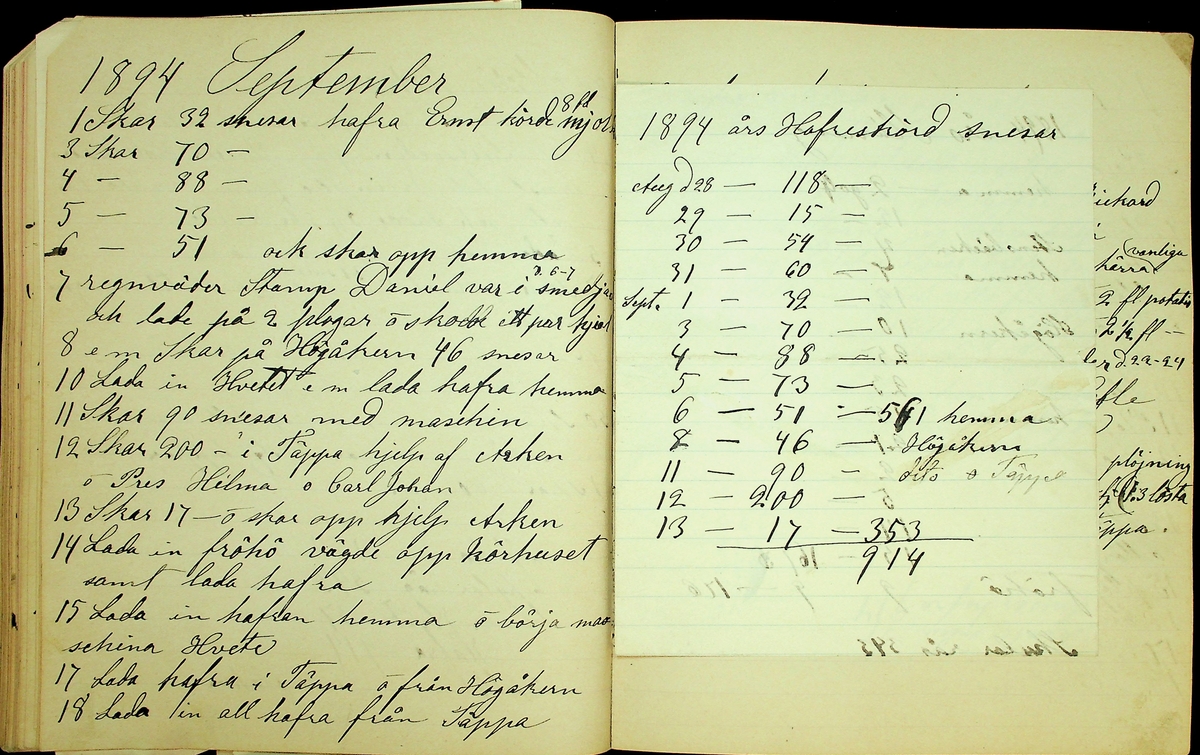 1894 September
1 Skar 32 snesar hafra Ernst körde 8 fd mjöl
3 Skar 70 —
4 — 88 —
5 — 73 —
6 — 51 ock skar opp hemma
7 regnväder Stamp Daniel var i smedja d. 6-7
ock lade på 2 plogar o skodde ett par hjul
8 e m Skar på Högåkern 46 snesar
10 Lada in Hvetet e m lada hafra hemma
11 Skar 90 snesar med maschin
12 Skar 200 — i Täppa hjelp af Arken
o Pres Hilma o Carl Johan
13 Skar 17 — o skar opp hjelp Arken
14 Lada in fröhö vägde opp körhuset
samt lada hafra
15 Lada in hafran hemma o börja ma
schina Hvete
17 Lada hafra i Täppa o från Högåkern
18 Lada in all hafra från Täppa
1894 års Hafreskörd snesar
Aug d 28 — 118 —
29 — 15 —
30 — 54 —
31 — 60 —
Sept. 1 — 32 —
3 — 70 —
4 — 88 —
5 — 73 —
6 — 51 — 561 hemma
8 — 46 — Högåkern
11 — 90 — dito o Täppa
12 — 200 —
13 — 17 — 353
914
ickard
vanliga
härra
2 fl potatis
2 ½ fl —
d. 22-24
plöjning
3 lösta
äppa.